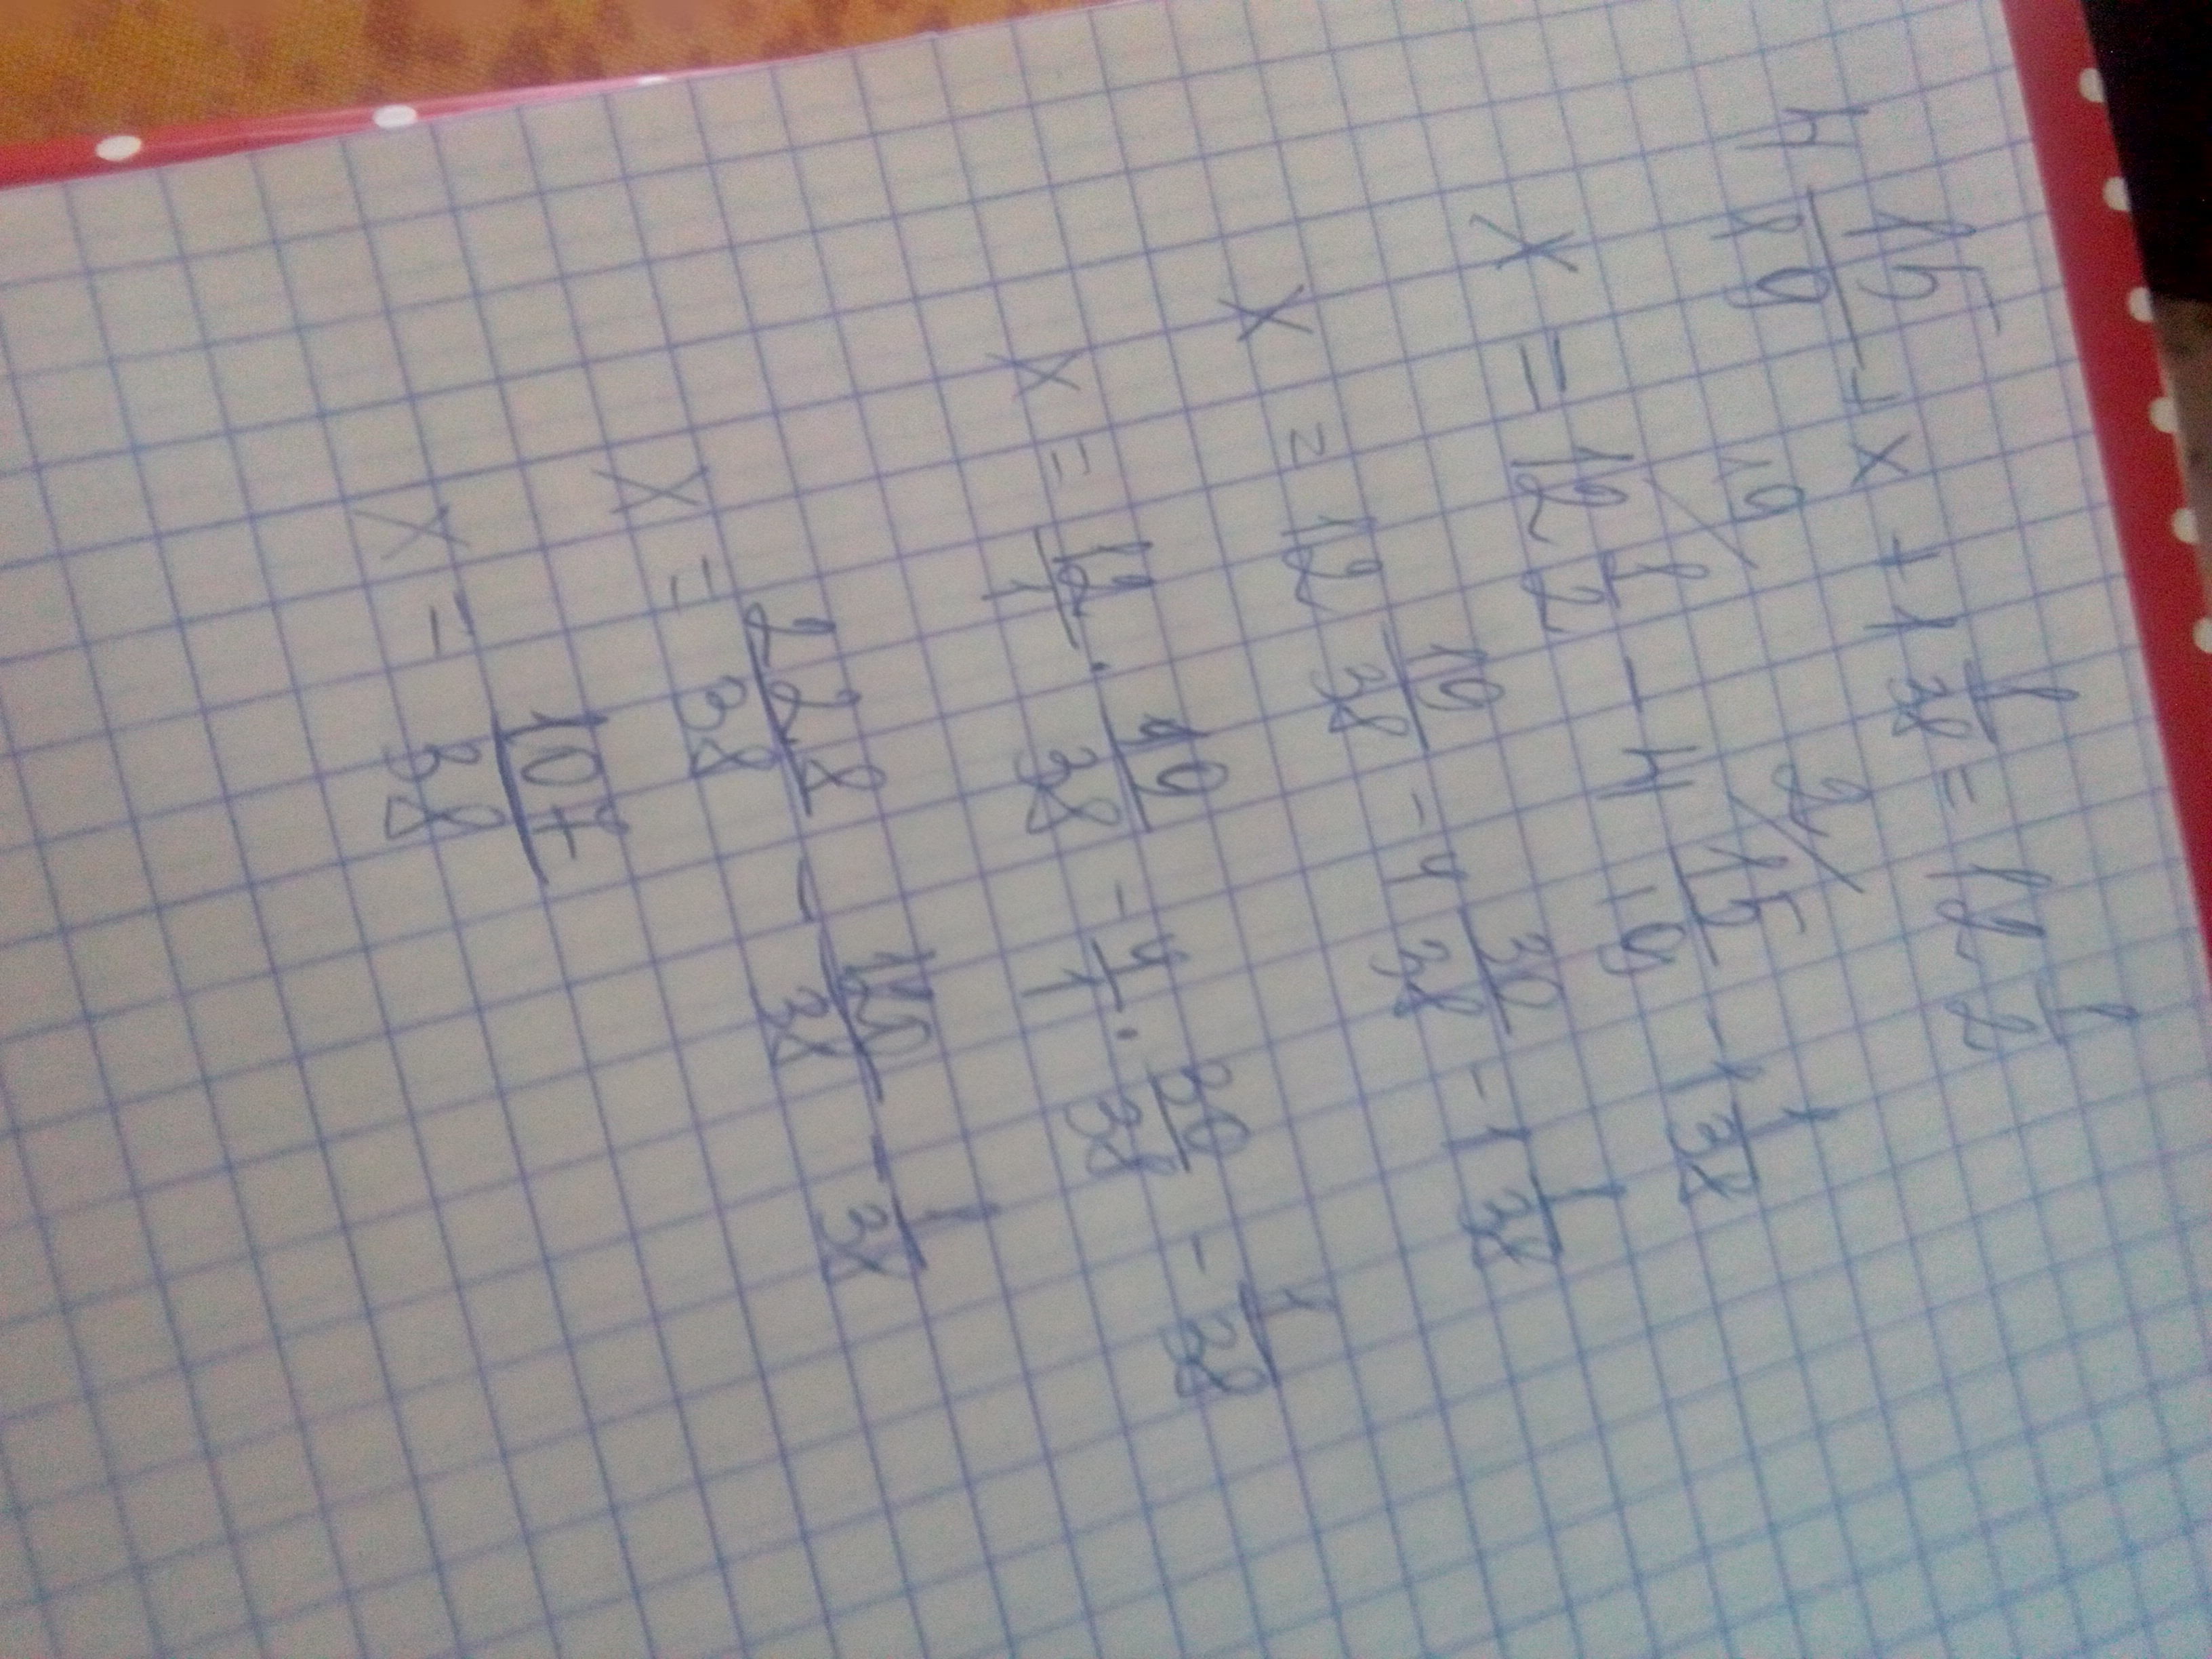 4 15/19 + x + 1 1/38 = 12 1/2
x = 12 19/ 1/2 - 4 2/ 15/19 - 1 1/38
x = 12 19/38 - 4 30/38 - 1 1/38
x = 12/1 · 19/38 - 4/1 · 30/38 - 1/38
x = 228/38 - 120/38 - 1/38
x = 107/38